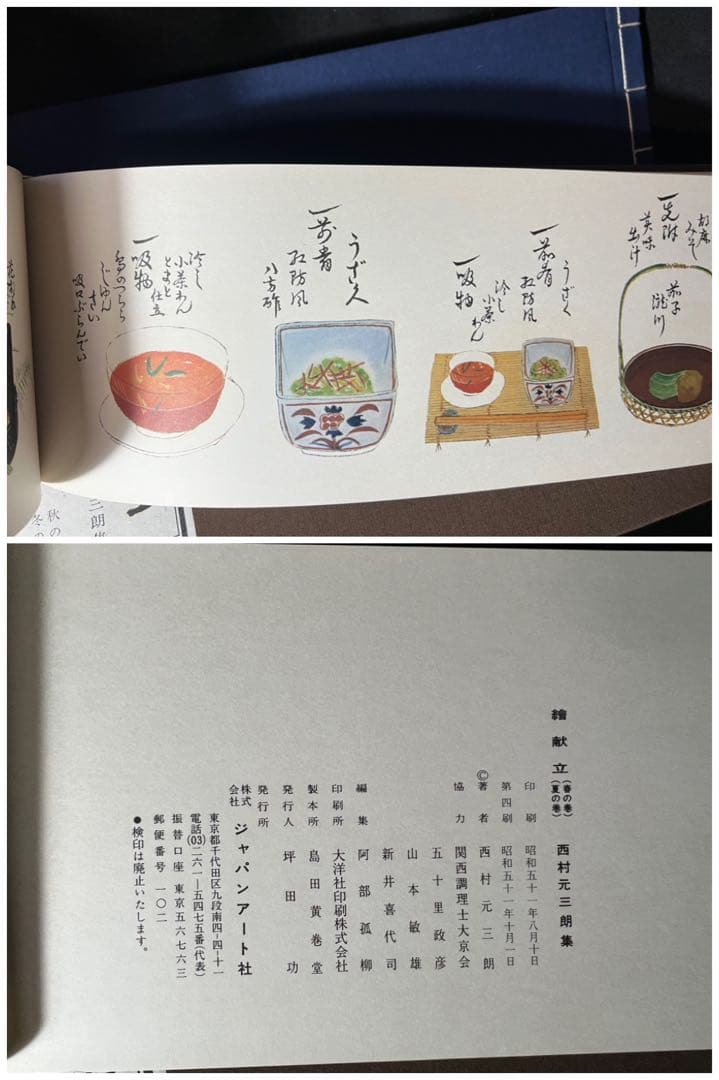 先附
胡麻
みそ
美味
出汁
茄子
瀧川
一前肴
うざく
紅防風
一吸物
冷し
小茶わん
一前肴
うざく
紅防風
八方酢
一吸物
冷し
小茶わん
とまと
仕立
じゅん
さい
吸口ぶらんでい
三朗
秋の
冬の
繪献立
(春の巻)
(夏の巻)
西村元三朗集
印刷 昭和五十一年八月十日
第四刷 昭和五十一年十月一日
©著者 西村元三朗
協力 関西調理士大京会
五十里政彦
山本敏雄
新井喜代司
編集 阿部孤柳
印刷所 大洋社印刷株式会社
製本所 島田黄巻堂
発行人 坪田功
発行所
株式会社 ジャパンアート社
東京都千代田区九段南四-四-十一
電話(03)二六一-五四七五番(代表)
振替口座 東京五六七六三
郵便番号 一〇二
●検印は廃止いたします。